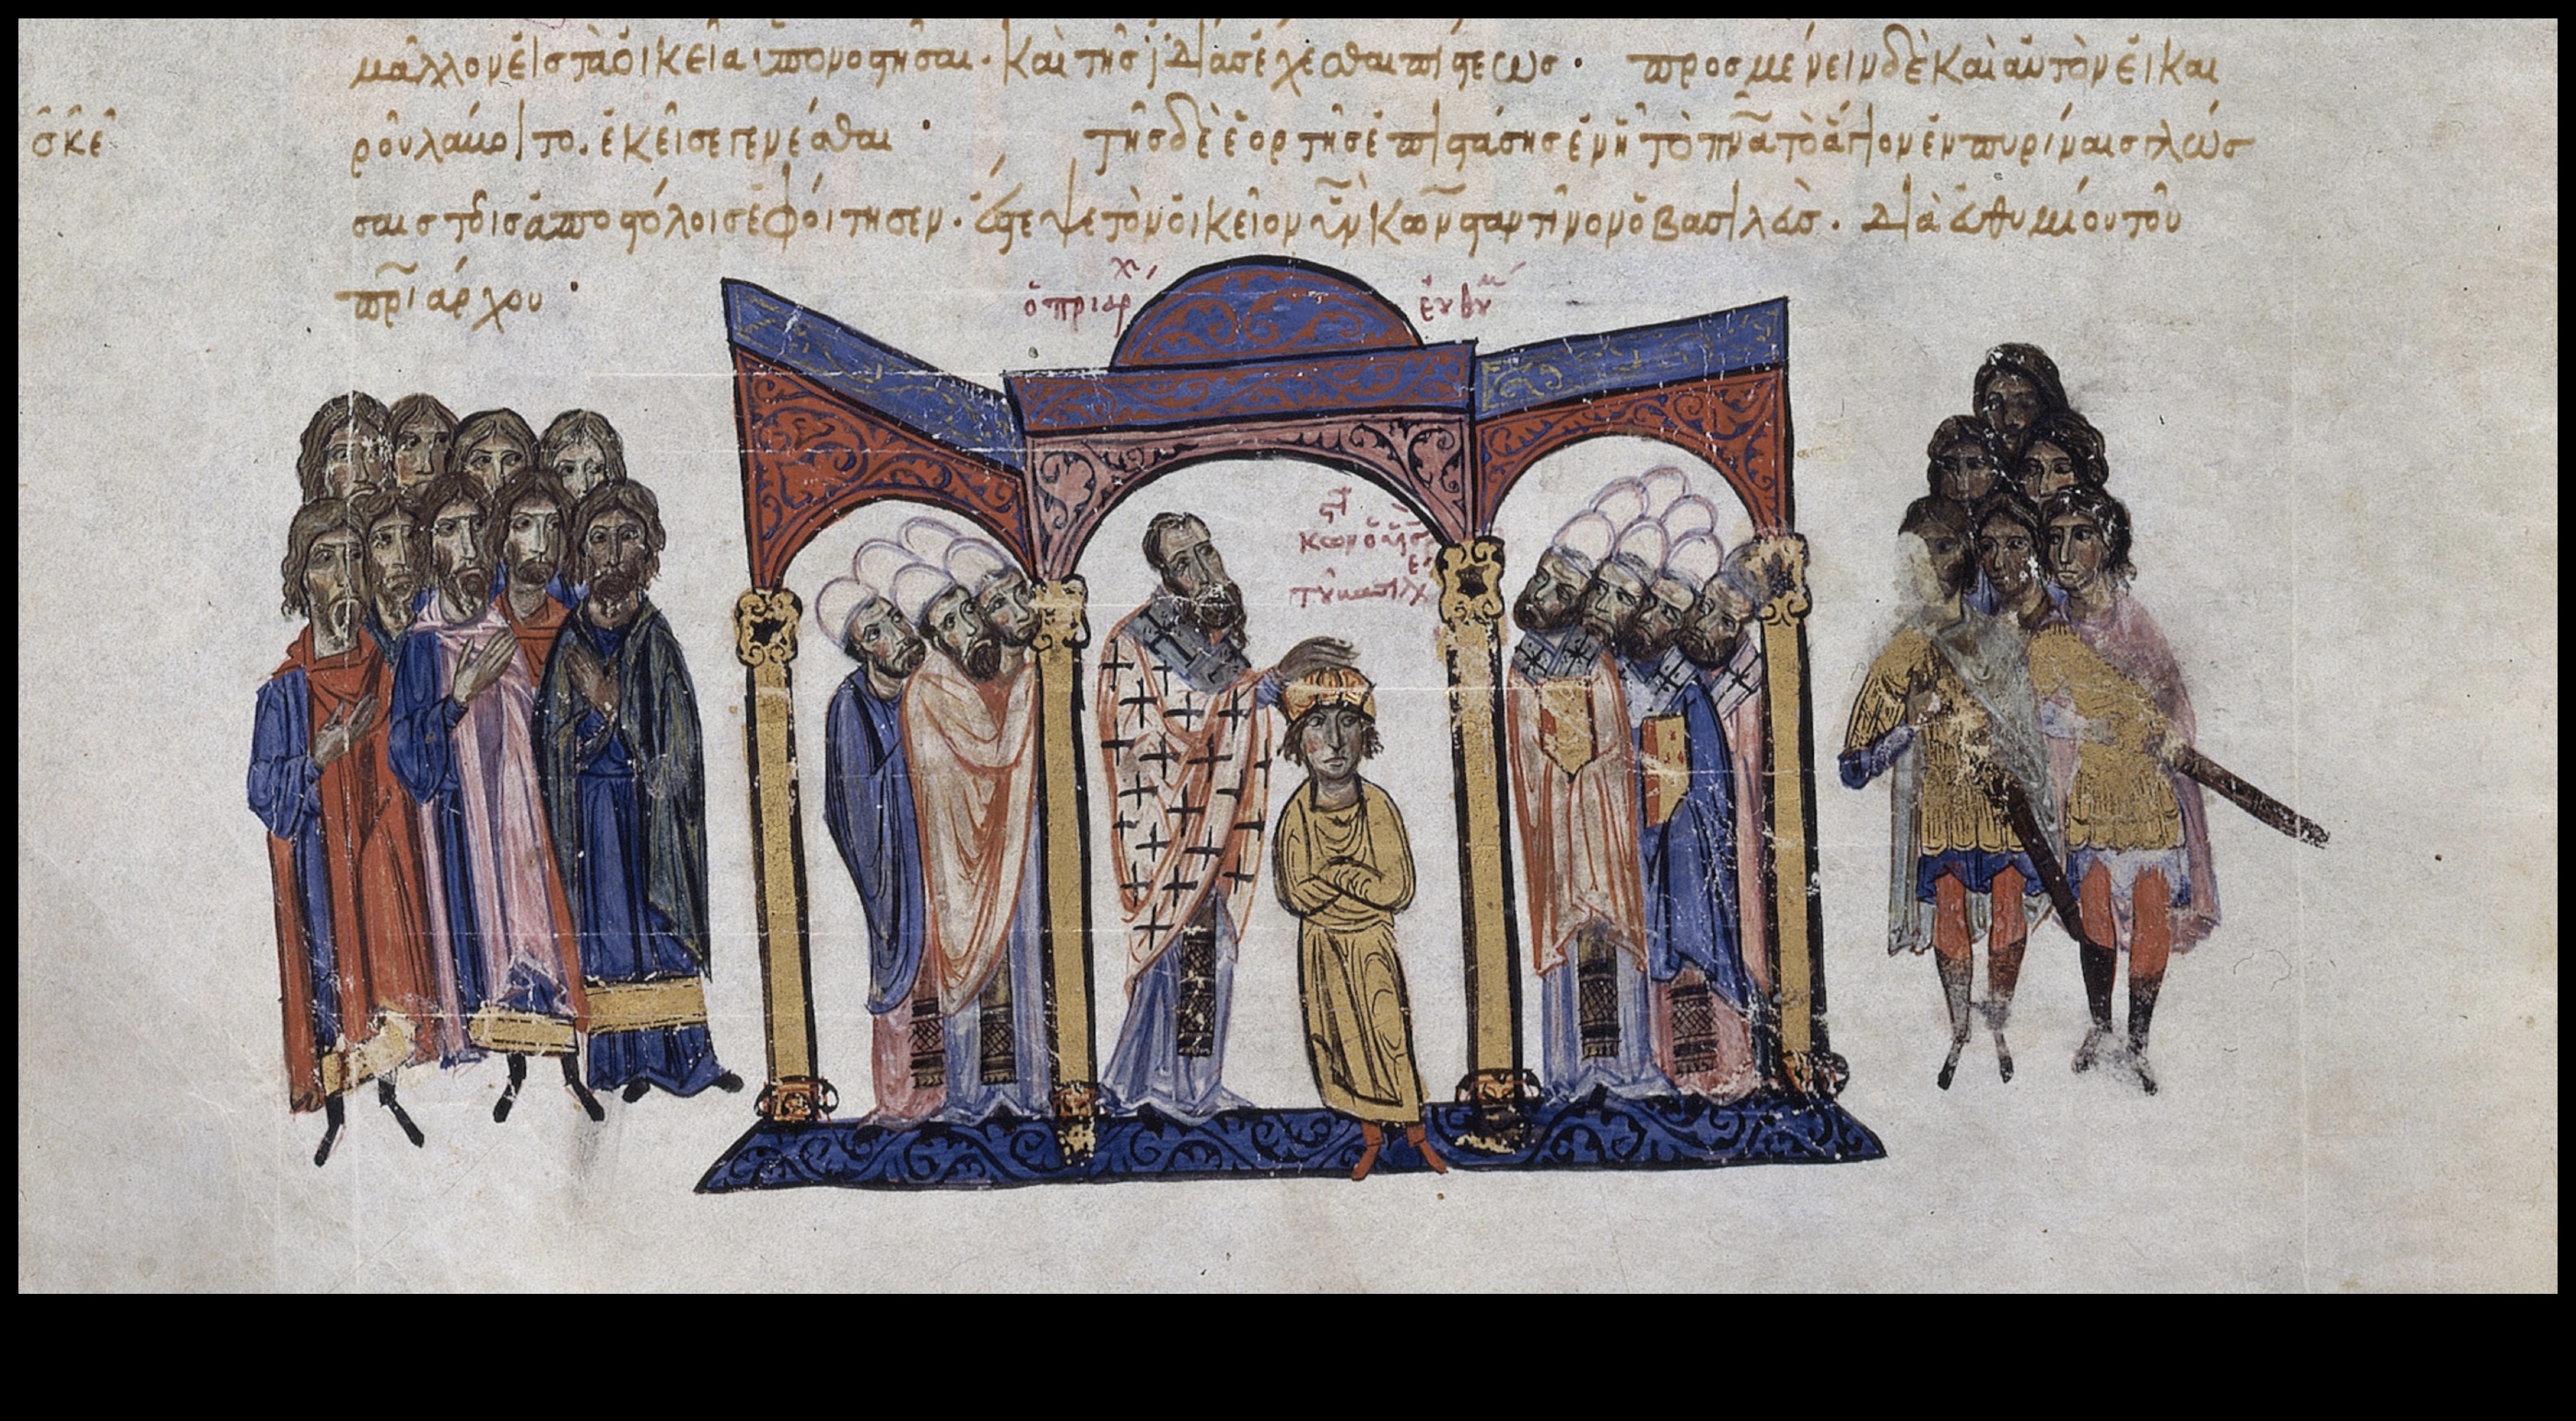 μᾶλλον εἰς τὰ οἰκεῖα ὑπονοστῆσαι · καὶ τῆς ἰδίας ἔχεσθαι πίστεως · προσμένειν δὲ καὶ αὐτὸν εἰ και
ροῦ λάβοιτο . ἐκεῖσε γενέσθαι · τῆς δὲ ἑορτῆς ἐπιστάσης ἐν ἧ τὸ πνᾶ τὸ ἅγιον ἐν πυρίναις γλώσ
σαις τοῖς ἀποστόλοις ἐφοίτησεν · ἔστεψε τὸν οἰκεῖον ὑν κων σταντῖνον ὁ βασιλεὺς · διὰ εὐθυμίου τοῦ
πριάρχου ·
ὁ πριάρχ
εὐθυμ